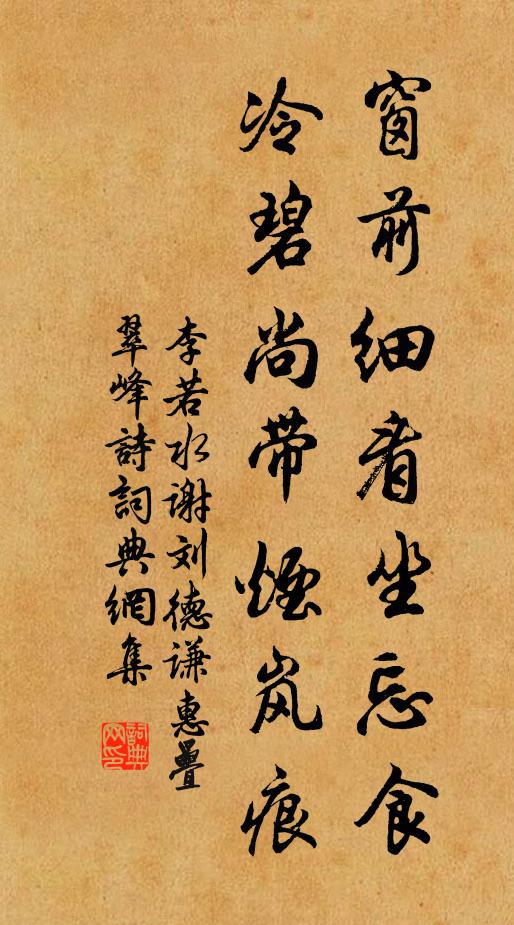 窗前细看坐忘食
冷碧尚带烟岚痕
李若水谢刘德谦惠叠
翠峰詩詞典網集
詞典网印